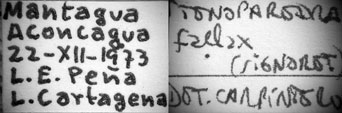 Mantagua
Aconcagua
22-XII-1973
L.E. Peña
L. Cartagena
fallax
(SIGNORET)
DET. CARPINTERO